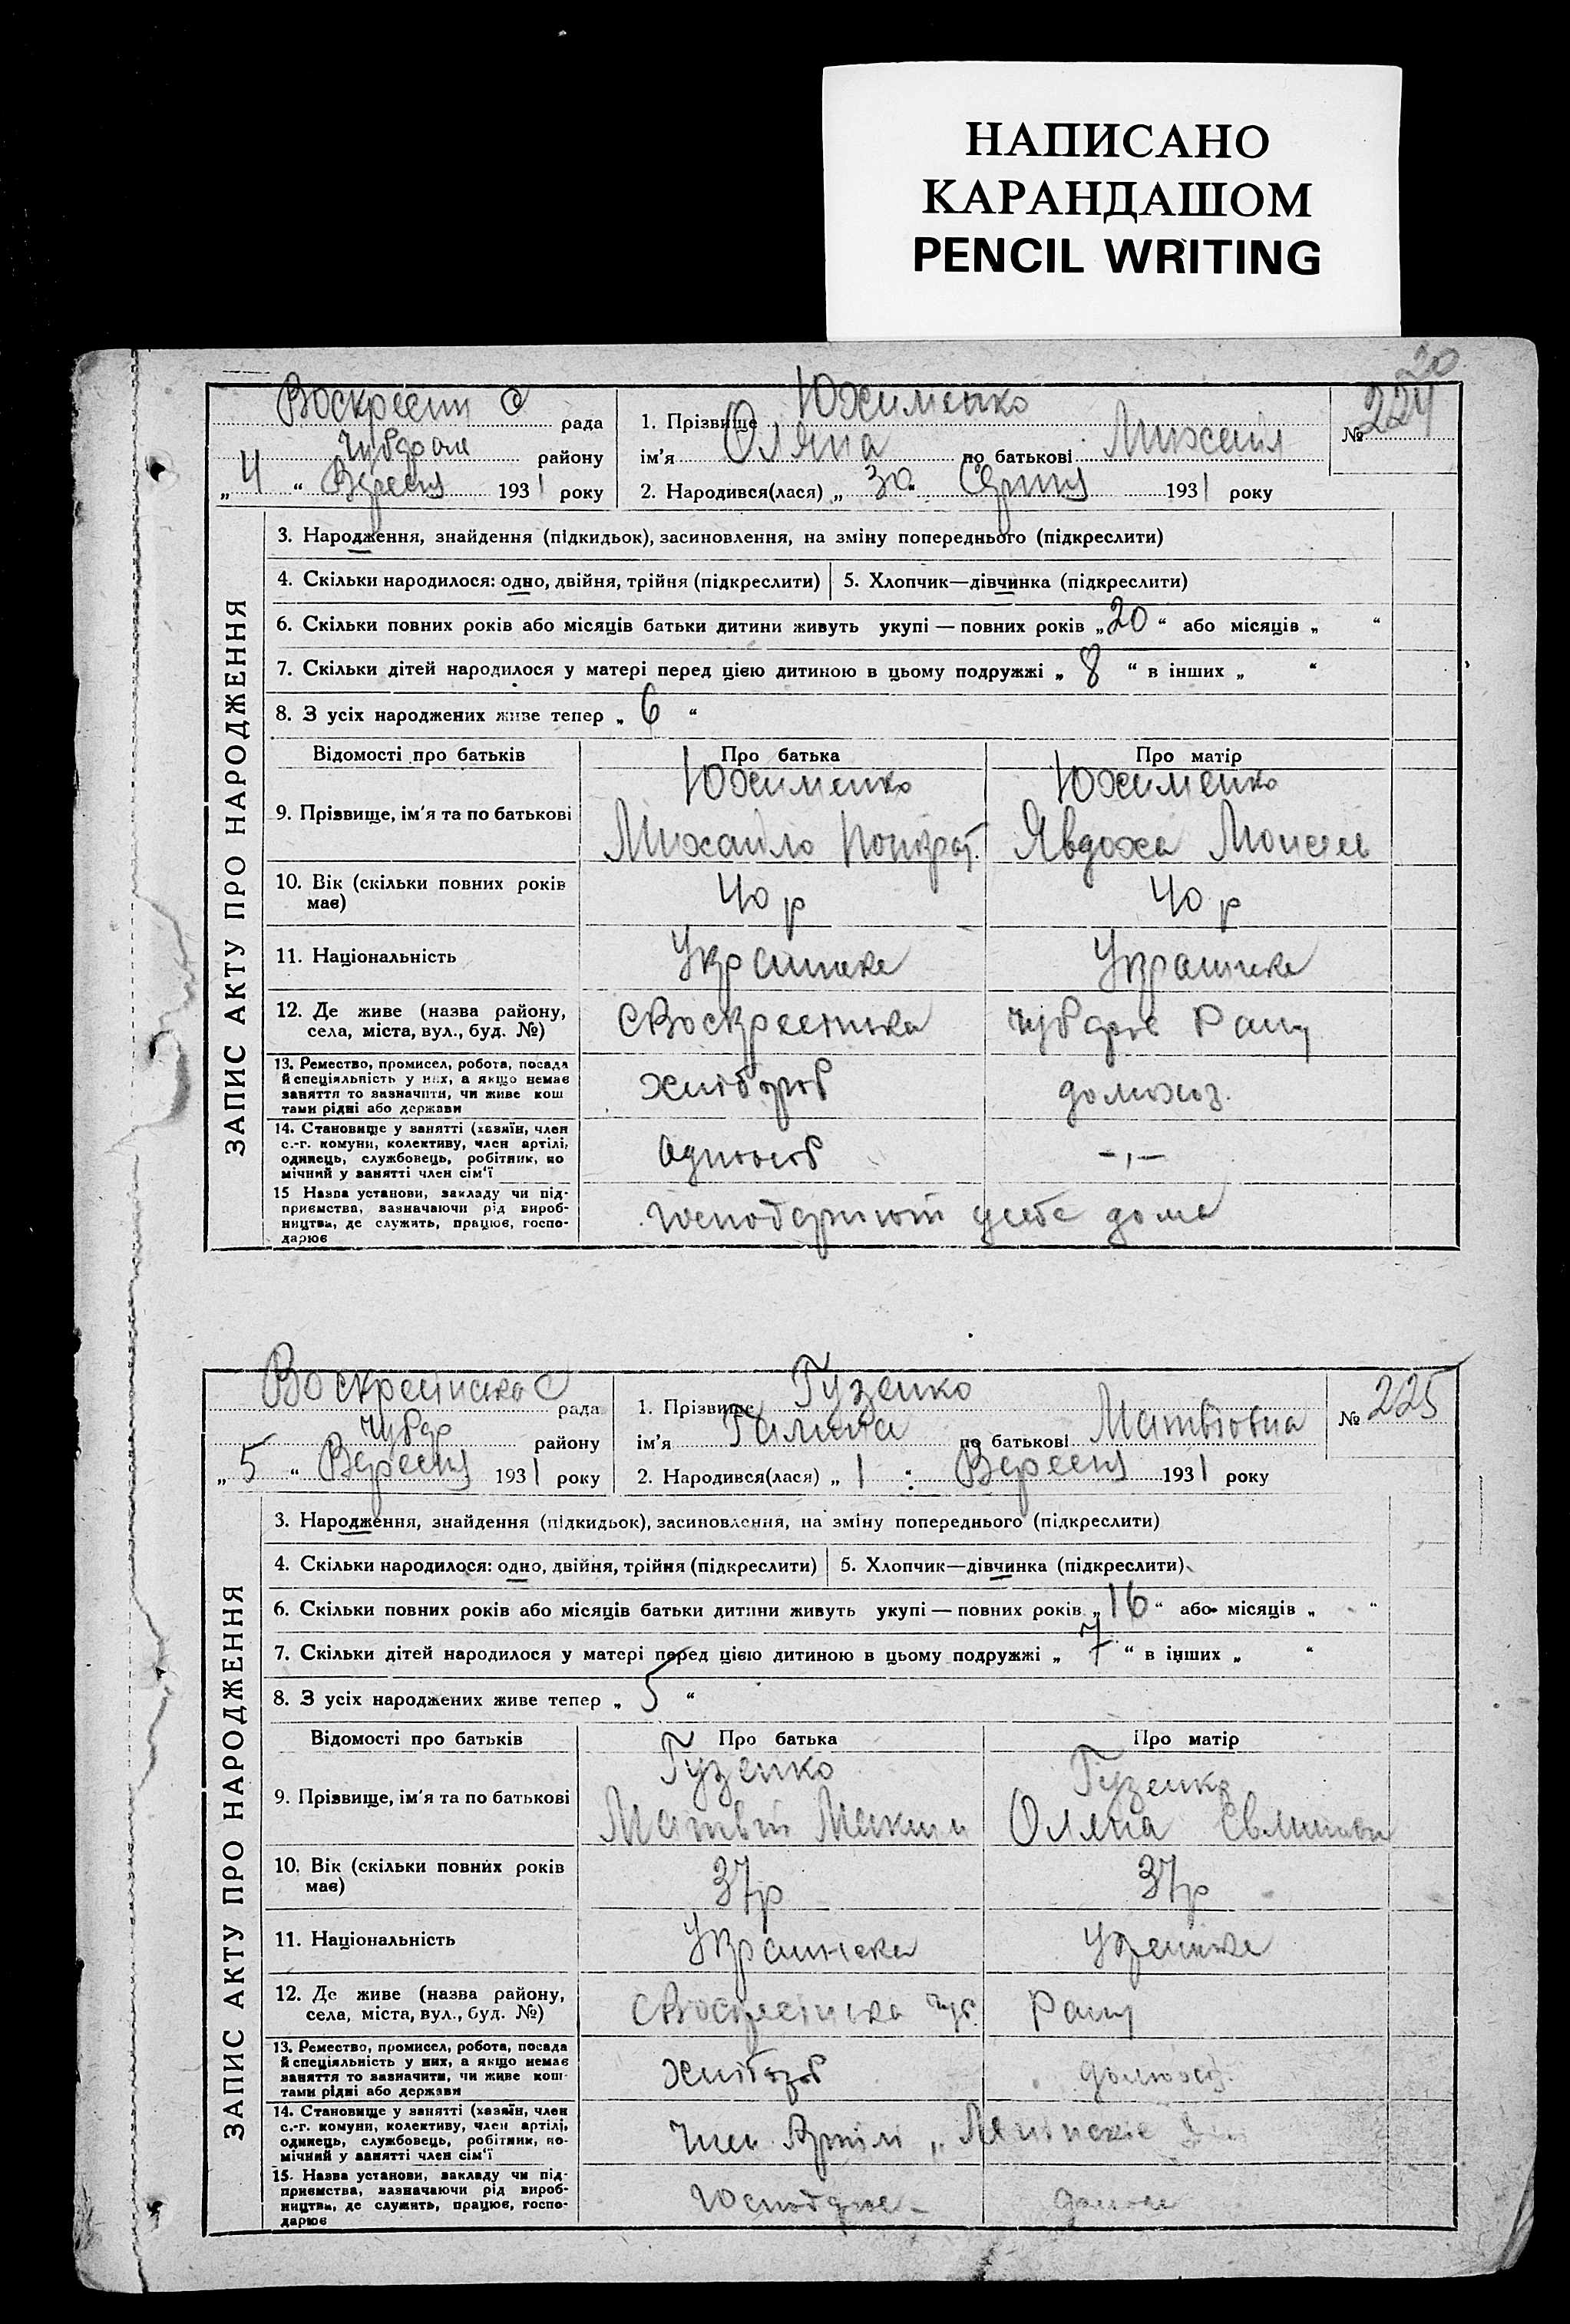 НАПИСАНО
КАРАНДАШОМ
PENCIL WRITING
20
Воскресин С рада
району
„4“ Вересня 1931 року
1. Прізвище Юхименко
ім'я Оляна по батькові Михаил
2. Народився(лася) „30“ Серпня 1931 року
№ 224
ЗАПИС АКТУ ПРО НАРОДЖЕННЯ
3. Народження, знайдення (підкидьок), засиновлення, на зміну попереднього (підкреслити)
4. Скільки народилося: одно, двійня, трійня (підкреслити) 5. Хлопчик—дівчинка (підкреслити)
6. Скільки повних років або місяців батьки дитини живуть укупі — повних років „20“ або місяців „ “
7. Скільки дітей народилося у матері перед цією дитиною в цьому подружжі „8“ в інших „ “
8. З усіх народжених живе тепер „6“
Відомості про батьків Про батька Про матір
9. Прізвище, ім'я та по батькові Юхименко Юхименко
Михайло Кондрат. Явдоха Моисее
10. Вік (скільки повних років має) 40 р 40 р
11. Національність Украинка Украинка
12. Де живе (назва району, села, міста, вул., буд. №) С Воскресинка Чубарс Рану
13. Ремество, промисел, робота, посада й спеціяльність у них, а якщо немає заняття то зазначити, чи живе кош тами рідні або держави Хлібороб домохоз.
14. Становище у занятті (хазяїн, член с.-г. комуни, колективу, член артілі, одинець, службовець, робітник, по мічний у занятті член сім'ї Одноосіб -„-
15 Назва установи, закладу чи під- приємства, зазначаючи рід вироб- ництва, де служить, працює, госпо- дарює господарюют у себе дома
Воскресинска С рада
Чубар району
„5“ Вересня 1931 року
1. Прізвище Гузенко
ім'я Галина по батькові Матвіовна
2. Народився(лася) „1“ Вересня 1931 року
№ 225
ЗАПИС АКТУ ПРО НАРОДЖЕННЯ
3. Народження, знайдення (підкидьок), засиновлення, на зміну попереднього (підкреслити)
4. Скільки народилося: одно, двійня, трійня (підкреслити) 5. Хлопчик—дівчинка (підкреслити)
6. Скільки повних років або місяців батьки дитини живуть укупі — повних років „16“ або місяців „ “
7. Скільки дітей народилося у матері перед цією дитиною в цьому подружжі „7“ в інших „ “
8. З усіх народжених живе тепер „5“
Відомості про батьків Про батька Про матір
9. Прізвище, ім'я та по батькові Гузенко Гузенко
Матвій Максим Оляна
10. Вік (скільки повних років має) 37р 37р
11. Національність Украинска Украинка
12. Де живе (назва району, села, міста, вул., буд. №) С Воскресинка Чуб. Рану
13. Ремество, промисел, робота, посада й спеціяльність у них, а якщо немає заняття то зазначити, чи живе кош тами рідні або держави Хлібороб домохоз.
14. Становище у занятті (хазяїн, член с.-г. комуни, колективу, член артілі, одинець, службовець, робітник, по- мічний у занятті член сім'ї Член Артілі
15. Назва установи, закладу чи під- приємства, зазначаючи рід вироб- ництва, де служить, працює, госпо- дарює Господарює - дома